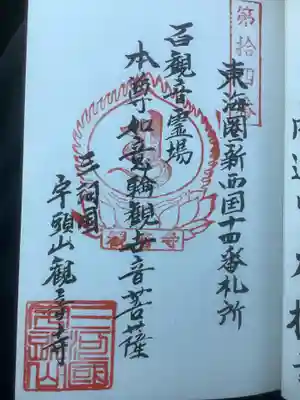 第拾四番
東海圏新西国十四番札所
百觀音霊場
本尊如意輪觀世音菩薩
三河国
宇頭山觀音寺
觀音寺
三河國
宇頭山